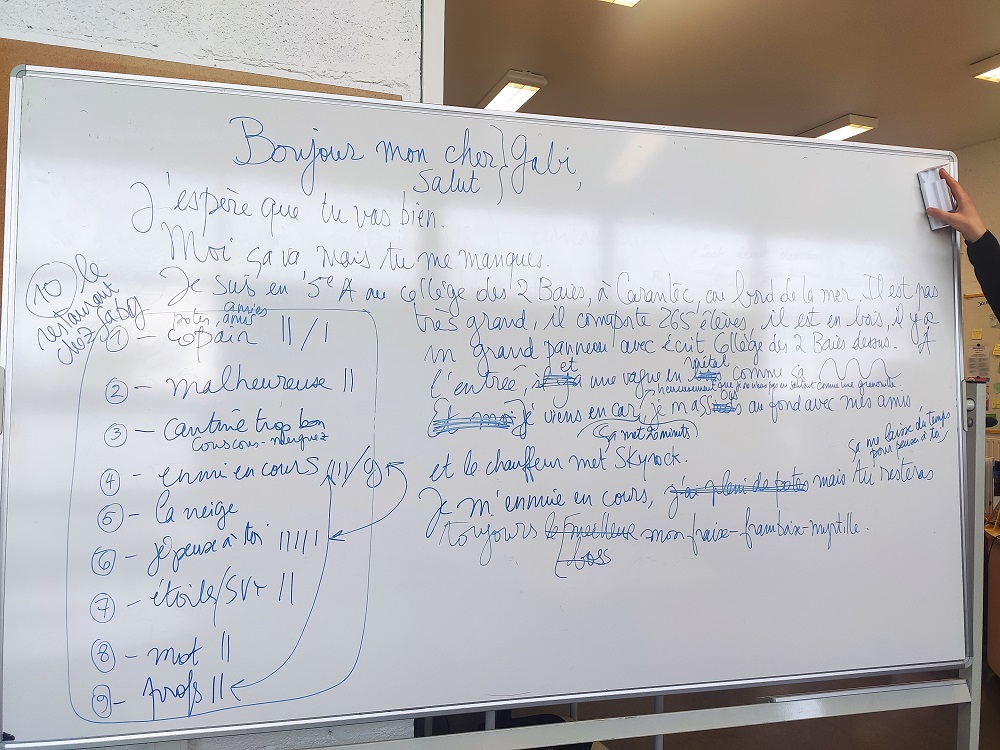 Bonjour mon cher } Gabi,
Salut
J'espère que tu vas bien.
Moi ça va mais tu me manques.
Je suis en 5e A au collège des 2 Baies, à Carantec, au bord de la mer. Il est pas
très grand, il comporte 265 élèves, il est en bois, il y a
un grand panneau avec écrit Collège des 2 Baies dessus. A
l'entrée, et a une vague en métal comme sa
heureusement que je ne viens pas en sautant comme une grenouille.
Et moi j'viens en car, je m'assois au fond avec mes amis
(ça met 20 minutes)
et le chauffeur met Skyrock.
ça me laisse du temps
pour penser à toi
Je m'ennuie en cours, j'ai plein de potes mais tu resteras
toujours le meilleur mon fraise-framboise-myrtille.
boss
10 le
restaurant
chez Gaby
potes, amis amies
1 - copain II/I
2 - malheureuse II
3 - cantine trop bon
couscous-merguez
4 - ennui en cours IIII/9
5 - la neige
6 - je pense à toi IIIII
7 - étoile/SVT II
8 - mot II
9 - profs II